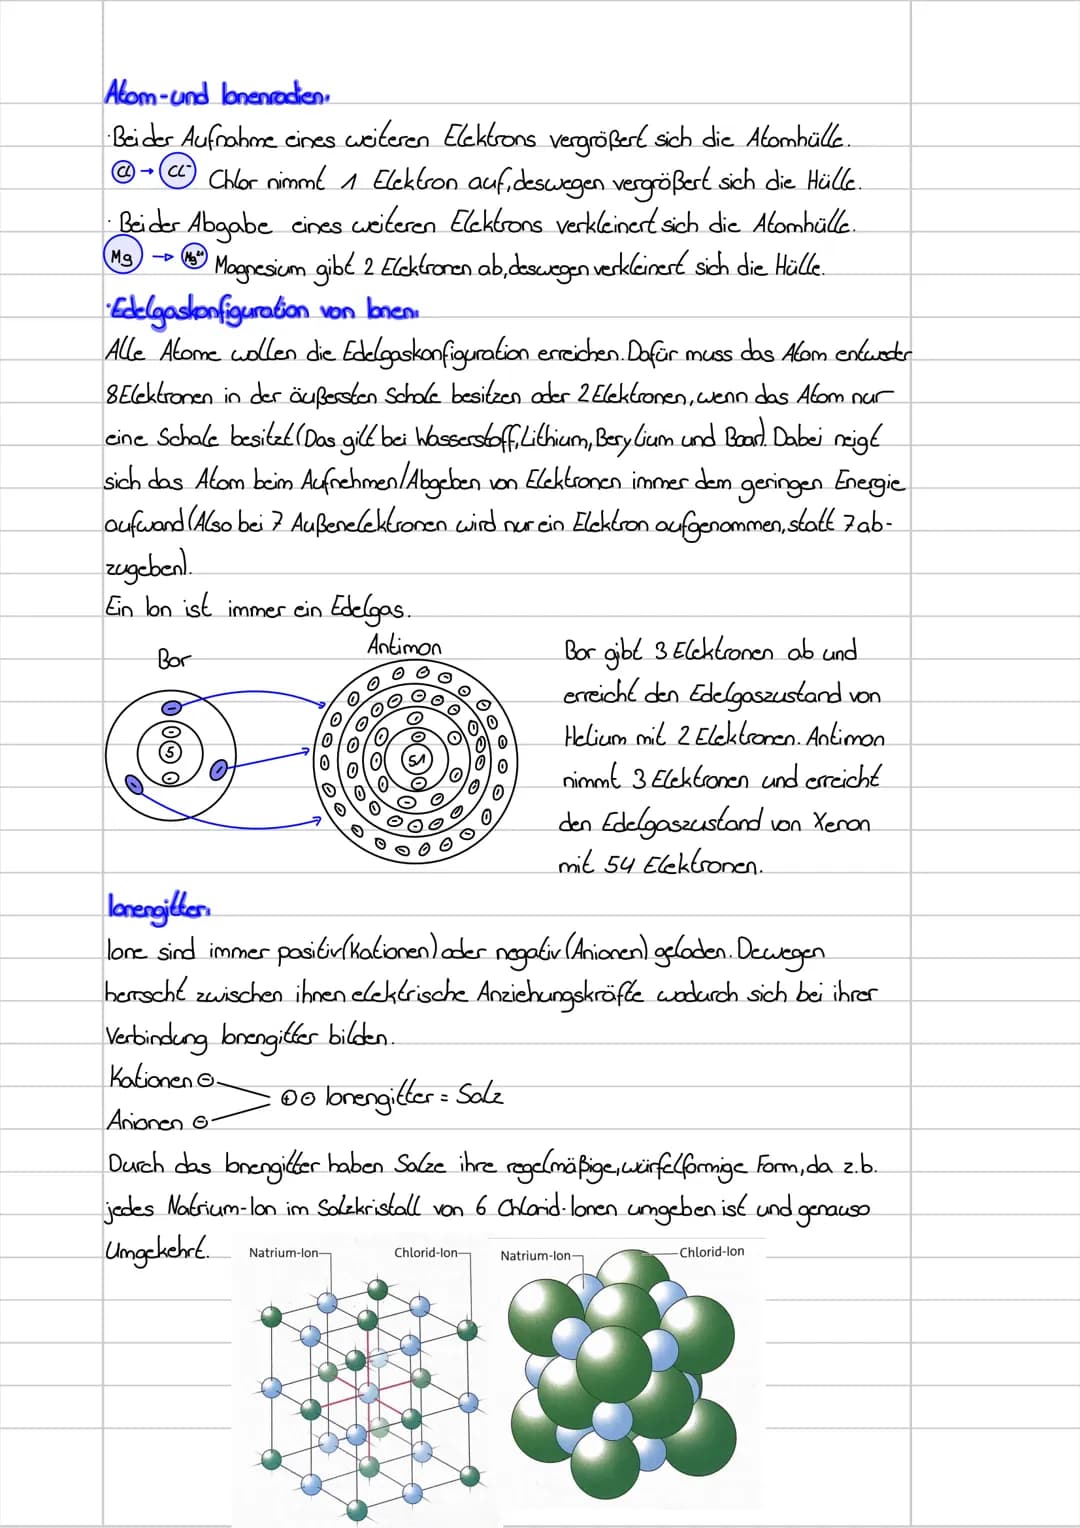 Atom-und Ionenradien:
·Bei der Aufnahme eines weiteren Elektrons vergrößert sich die Atomhülle.
Cl → Cl⁻ Chlor nimmt 1 Elektron auf, deswegen vergrößert sich die Hülle.
·Bei der Abgabe eines weiteren Elektrons verkleinert sich die Atomhülle.
Mg → Mg²⁺ Magnesium gibt 2 Elektronen ab, deswegen verkleinert sich die Hülle.
·Edelgaskonfiguration von Ionen:
Alle Atome wollen die Edelgaskonfiguration erreichen. Dafür muss das Atom entweder
8 Elektronen in der äußersten Schale besitzen oder 2 Elektronen, wenn das Atom nur
eine Schale besitzt (Das gilt bei Wasserstoff, Lithium, Berylium und Boar). Dabei neigt
sich das Atom beim Aufnehmen/Abgeben von Elektronen immer dem geringen Energie
aufwand (Also bei 7 Außenelektronen wird nur ein Elektron aufgenommen, statt 7 ab-
zugeben).
Ein Ion ist immer ein Edelgas.
Bor
5
Antimon
51
Bor gibt 3 Elektronen ab und
erreicht den Edelgaszustand von
Helium mit 2 Elektronen. Antimon
nimmt 3 Elektronen und erreicht
den Edelgaszustand von Xenon
mit 54 Elektronen.
Ionengitter:
Ione sind immer positiv (Kationen) oder negativ (Anionen) geladen. Dewegen
herrscht zwischen ihnen elektrische Anziehungskräfte wodurch sich bei ihrer
Verbindung Ionengitter bilden.
Kationen ⊖
Anionen ⊖
⊕⊖ Ionengitter = Salz
Durch das Ionengitter haben Salze ihre regelmäßige, würfelförmige Form, da z.b.
jedes Natrium-Ion im Salzkristall von 6 Chlorid-Ionen umgeben ist und genauso
Umgekehrt.
Natrium-Ion
Chlorid-Ion
Natrium-Ion
Chlorid-Ion